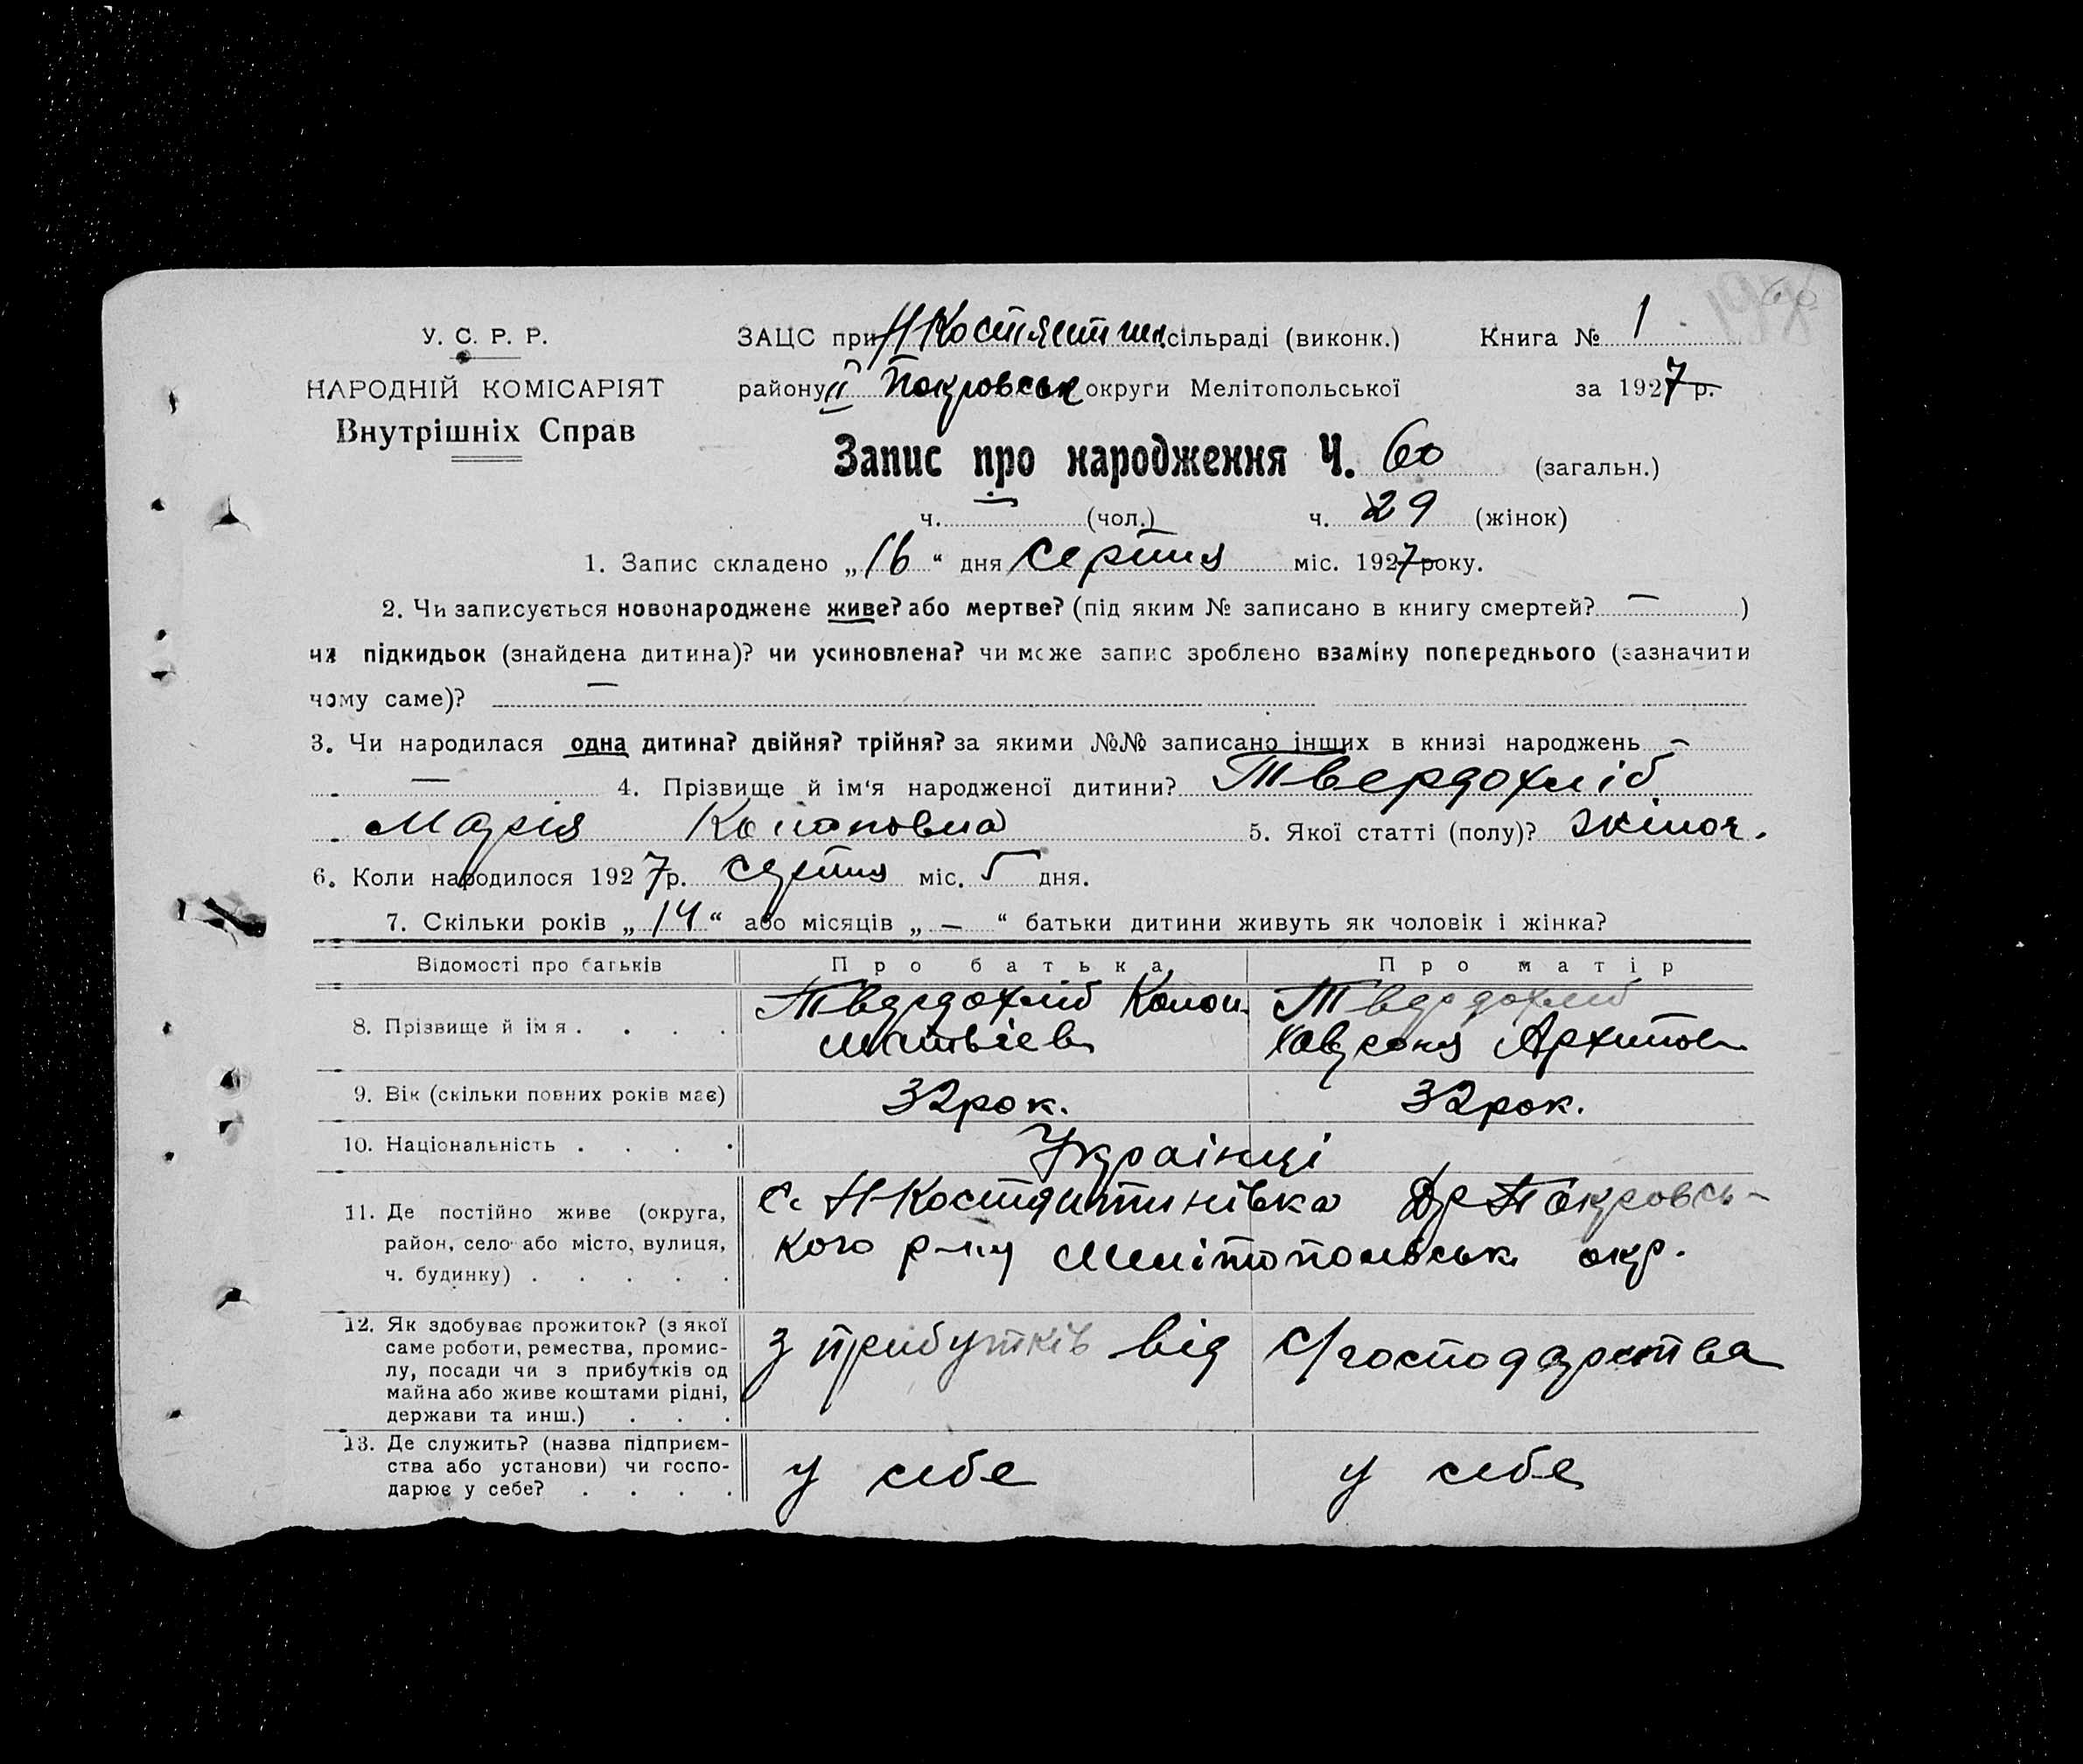 У. С. Р. Р.
НАРОДНІЙ КОМІСАРІЯТ
Внутрішніх Справ
ЗАЦС при Н Костянтин. сільраді (виконк.) Книга № 1
району II Покровськ округи Мелітопольської за 1927 р.
Запис про народження Ч. 60 (загальн.)
ч. — (чол.) ч. 29 (жінок)
1. Запис складено „16“ дня серпня міс. 1927 року.
2. Чи записується новонароджене живе? або мертве? (під яким № записано в книгу смертей? — )
чи підкидьок (знайдена дитина)? чи усиновлена? чи може запис зроблено взаміну попереднього (зазначити
чому саме)? —
3. Чи народилася одна дитина? двійня? трійня? за якими №№ записано інших в книзі народжень —
— 4. Прізвище й ім'я народженої дитини? Твердохліб
Марія Кононовна 5. Якої статті (полу)? жіноч.
6. Коли народилося 1927 р. серпня міс. 5 дня.
7. Скільки років „14“ або місяців „—“ батьки дитини живуть як чоловік і жінка?
Відомості про батьків Про батька Про матір
8. Прізвище й імя . . . . Твердохліб Конон Твердохліб
Матвіев Хавроня Архипов
9. Вік (скільки повних років має) 32 рок. 32 рок.
10. Національність . . . . Українці
11. Де постійно живе (округа, с. Н-Костянтинівка Покровсь-
район, село або місто, вулиця, кого р-ну Мелітопольськ окр.
ч. будинку) . . . . .
12. Як здобуває прожиток? (з якої
саме роботи, ремества, промис- з прибутків від с/господарства
лу, посади чи з прибутків од
майна або живе коштами рідні,
держави та инш.) . . .
13. Де служить? (назва підприєм-
ства або установи) чи госпо- у себе у себе
дарює у себе? . . . .